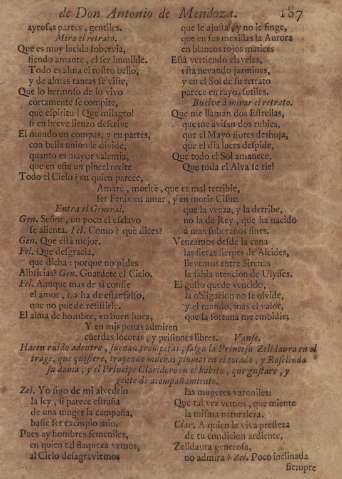 de Don Antonio de Mendoza. 187
ayrosas parece, gentiles.
Mira el retrato.
Que es muy lucida sobervia,
siendo amante, el ser humilde.
Todo es alma el rostro bello,
y de almas tantas se viste,
Que lo hermoso de lo vivo
cortamente se compite,
que espiritu! Que milagro!
si en breve lienço
El mundo en compas, y en partes,
con bella union se divide,
quanto es mayor valentia,
que en esta un pincèl
Todo el Cielo! en quien parece,
que le ajusta, y no le finge,
que en sus mexillas la Aurora
en blancos rojos matices
Està vertiendo claveles,
està nevando jazmines,
y en el Sol de su retrato
parece en rayo, sutiles.
Buelve à mirar el retrato.
Que me llaman dos estrellas,
que me avisan dos rubies,
que el Mayo flores deshoja,
que el dia luces despide,
Que todo el Sol amanece,
Que toda el Alva se rie!
Amarè, morirè, que es mal terrible,
ser Fenix en amar, y en morir Cisne.
Entra el General.
Gen. Señor, un poco el esclavo
se alienta. Fel. Como? què dices?
Gen. Que està mejor.
Fel. Que desgracia,
que dicha: porque no pides
Albricias? Gen. Guardete el Cielo.
Fel. Aunque mas de si confie
el amor,
que no puede
El alma de hombre,
que la vença, y la derribe,
no la de Rey, que ha nacido
à mas soberanos fines.
Vençamos desde la cuna
las fieras sierpes de Alcides,
llevemos entre Sirenas
la sabia atencion de Ulysses.
El gusto quede vencido,
la obligacion no se olvide,
y el mundo, mas el valor,
que la fortuna me embidie:
Y en mis penas admiren
cuerdas locuras, y prisiones libres. Vanse.
Hacen ruido adentro, suenan trompetas, salga la Princesa Zelidaura en el
trage, que quisiere, trayendo muchas plumas en el tocado, y Roselinda
su dama; y el Principe Claridoro en el habito, que gustare, y
gente de acompañamiento.
Zel. Yo sigo de mi alvedrio
la ley, si parece estraña
de una muger la campaña,
baste ser exemplo mio.
Pues ay hombres femeniles,
en quien es flaqueza vemos,
al Cielo desagraviemos
las mugeres varoniles:
Que tal vez vemos, que miente
la misma naturaleza.
Clar. A quien la viva presteza
de tu condicion ardiente,
Zelidaura generosa,
no admira? Zel. Poco inclinada
siempre